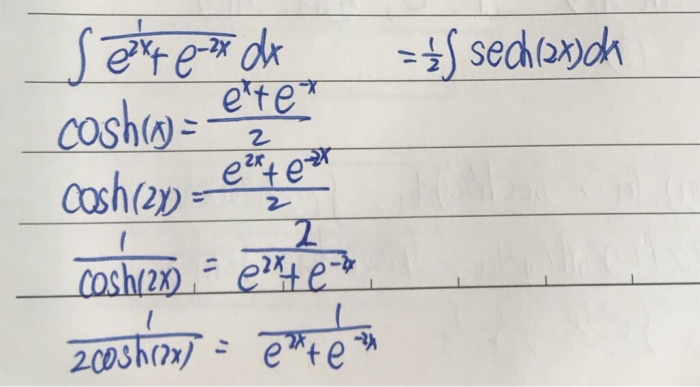 ∫ 1/(e^{2x}+e^{-2x}) dx = 1/2 ∫ sech(2x)dx
cosh(x) = (e^x+e^{-x})/2
cosh(2x) = (e^{2x}+e^{-2x})/2
1/cosh(2x) = 2/(e^{2x}+e^{-2x})
1/(2cosh(2x)) = 1/(e^{2x}+e^{-2x})